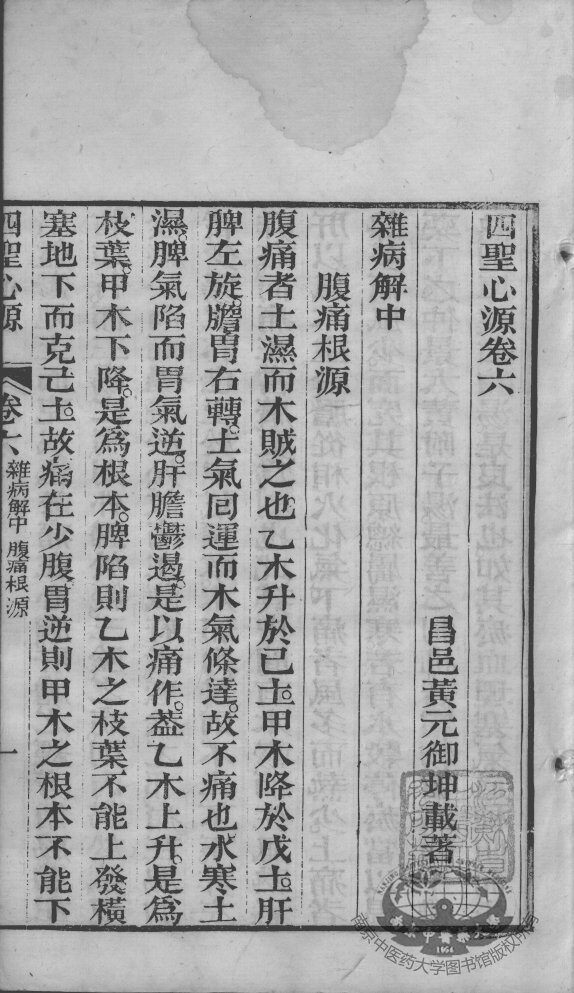 四聖心源卷六
昌邑黃元御坤載著
雜病解中
腹痛根源
腹痛者土濕而木賊之也乙木升於己土。甲木降於戊土。肝
脾左旋。膽胃右轉。土氣囘運而木氣條達。故不痛也。水寒土
濕。脾氣陷而胃氣逆。肝膽鬱遏。是以痛作。葢乙木上升。是爲
枝葉。甲木下降。是爲根本。脾陷則乙木之枝葉不能上發橫
塞地下而克己土。故痛在少腹胃逆則甲木之根本不能下
四聖心源
卷六
雜病解中 腹痛根源
一
南京中医药大学图书馆版权所有
1954